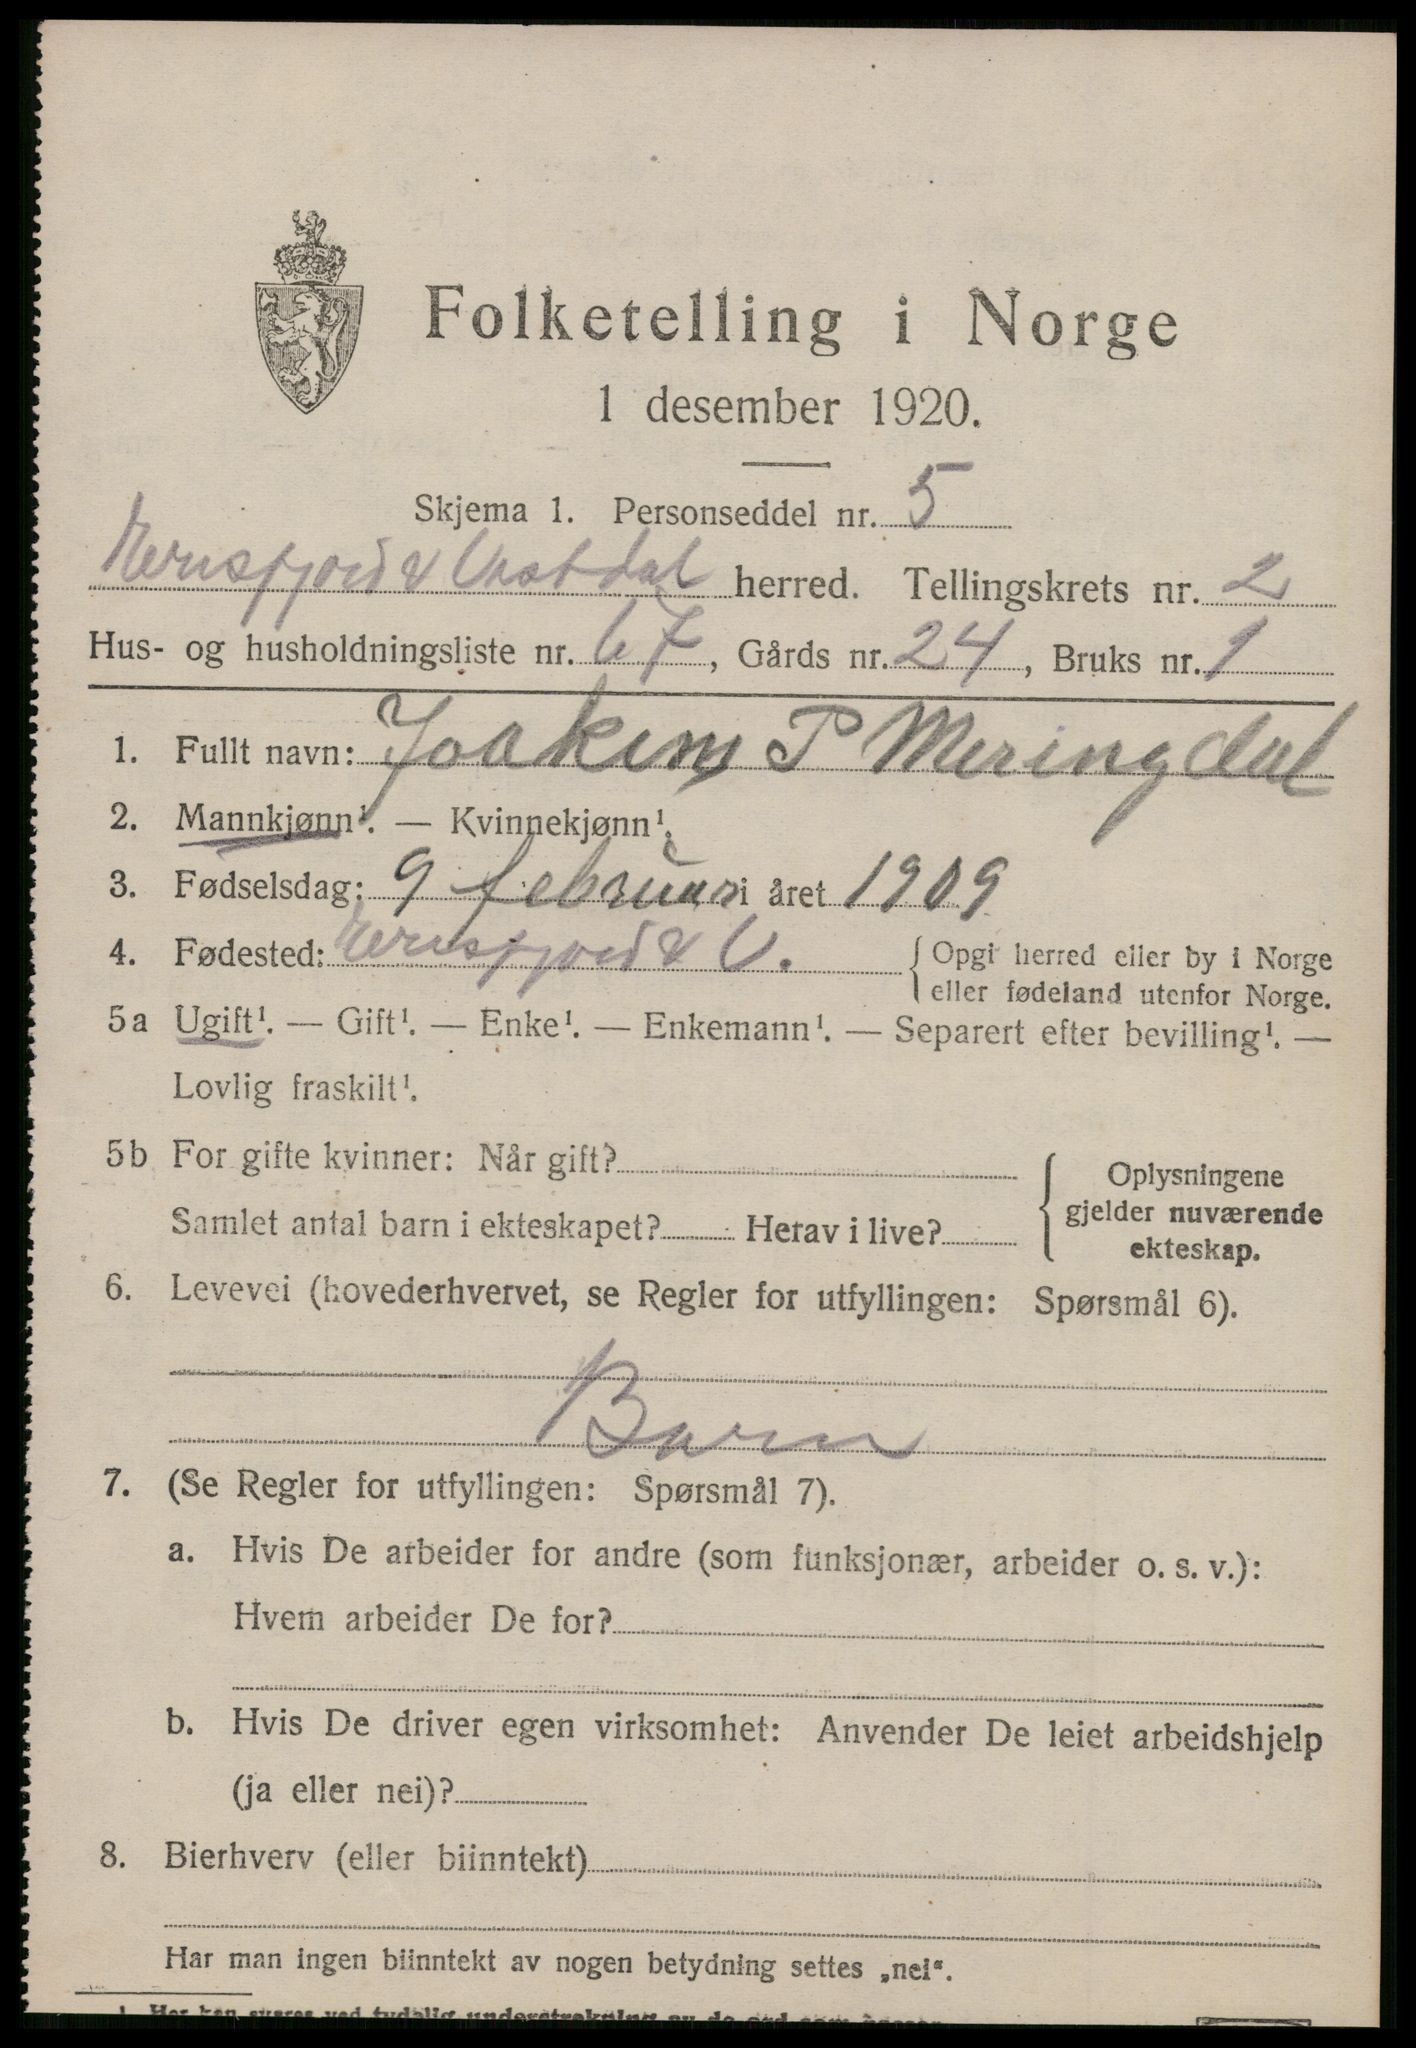 Folketelling i Norge
1 desember 1920.
Skjema 1. Personseddel nr. 5
& herred. Tellingskrets nr. 2
Hus- og husholdningsliste nr. 67, Gårds nr. 24, Bruks nr. 1
1. Fullt navn: Joakim P Meringdal
2. Mannkjønn¹. — Kvinnekjønn¹.
3. Fødselsdag: 9 februar i året 1909
4. Fødested: & V. { Opgi herred eller by i Norge
eller fødeland utenfor Norge.
5a Ugift¹. — Gift¹. — Enke¹. — Enkemann¹. — Separert efter bevilling¹. —
Lovlig fraskilt¹.
5b For gifte kvinner: Når gift?
Samlet antal barn i ekteskapet? Herav i live?
{ Oplysningene
gjelder nuværende
ekteskap.
6. Levevei (hovederhvervet, se Regler for utfyllingen: Spørsmål 6).
Barn
7. (Se Regler for utfyllingen: Spørsmål 7).
a. Hvis De arbeider for andre (som funksjonær, arbeider o. s. v.):
Hvem arbeider De for?
b. Hvis De driver egen virksomhet: Anvender De leiet arbeidshjelp
(ja eller nei)?
8. Bierhverv (eller biinntekt)
Har man ingen biinntekt av nogen betydning settes „nei".